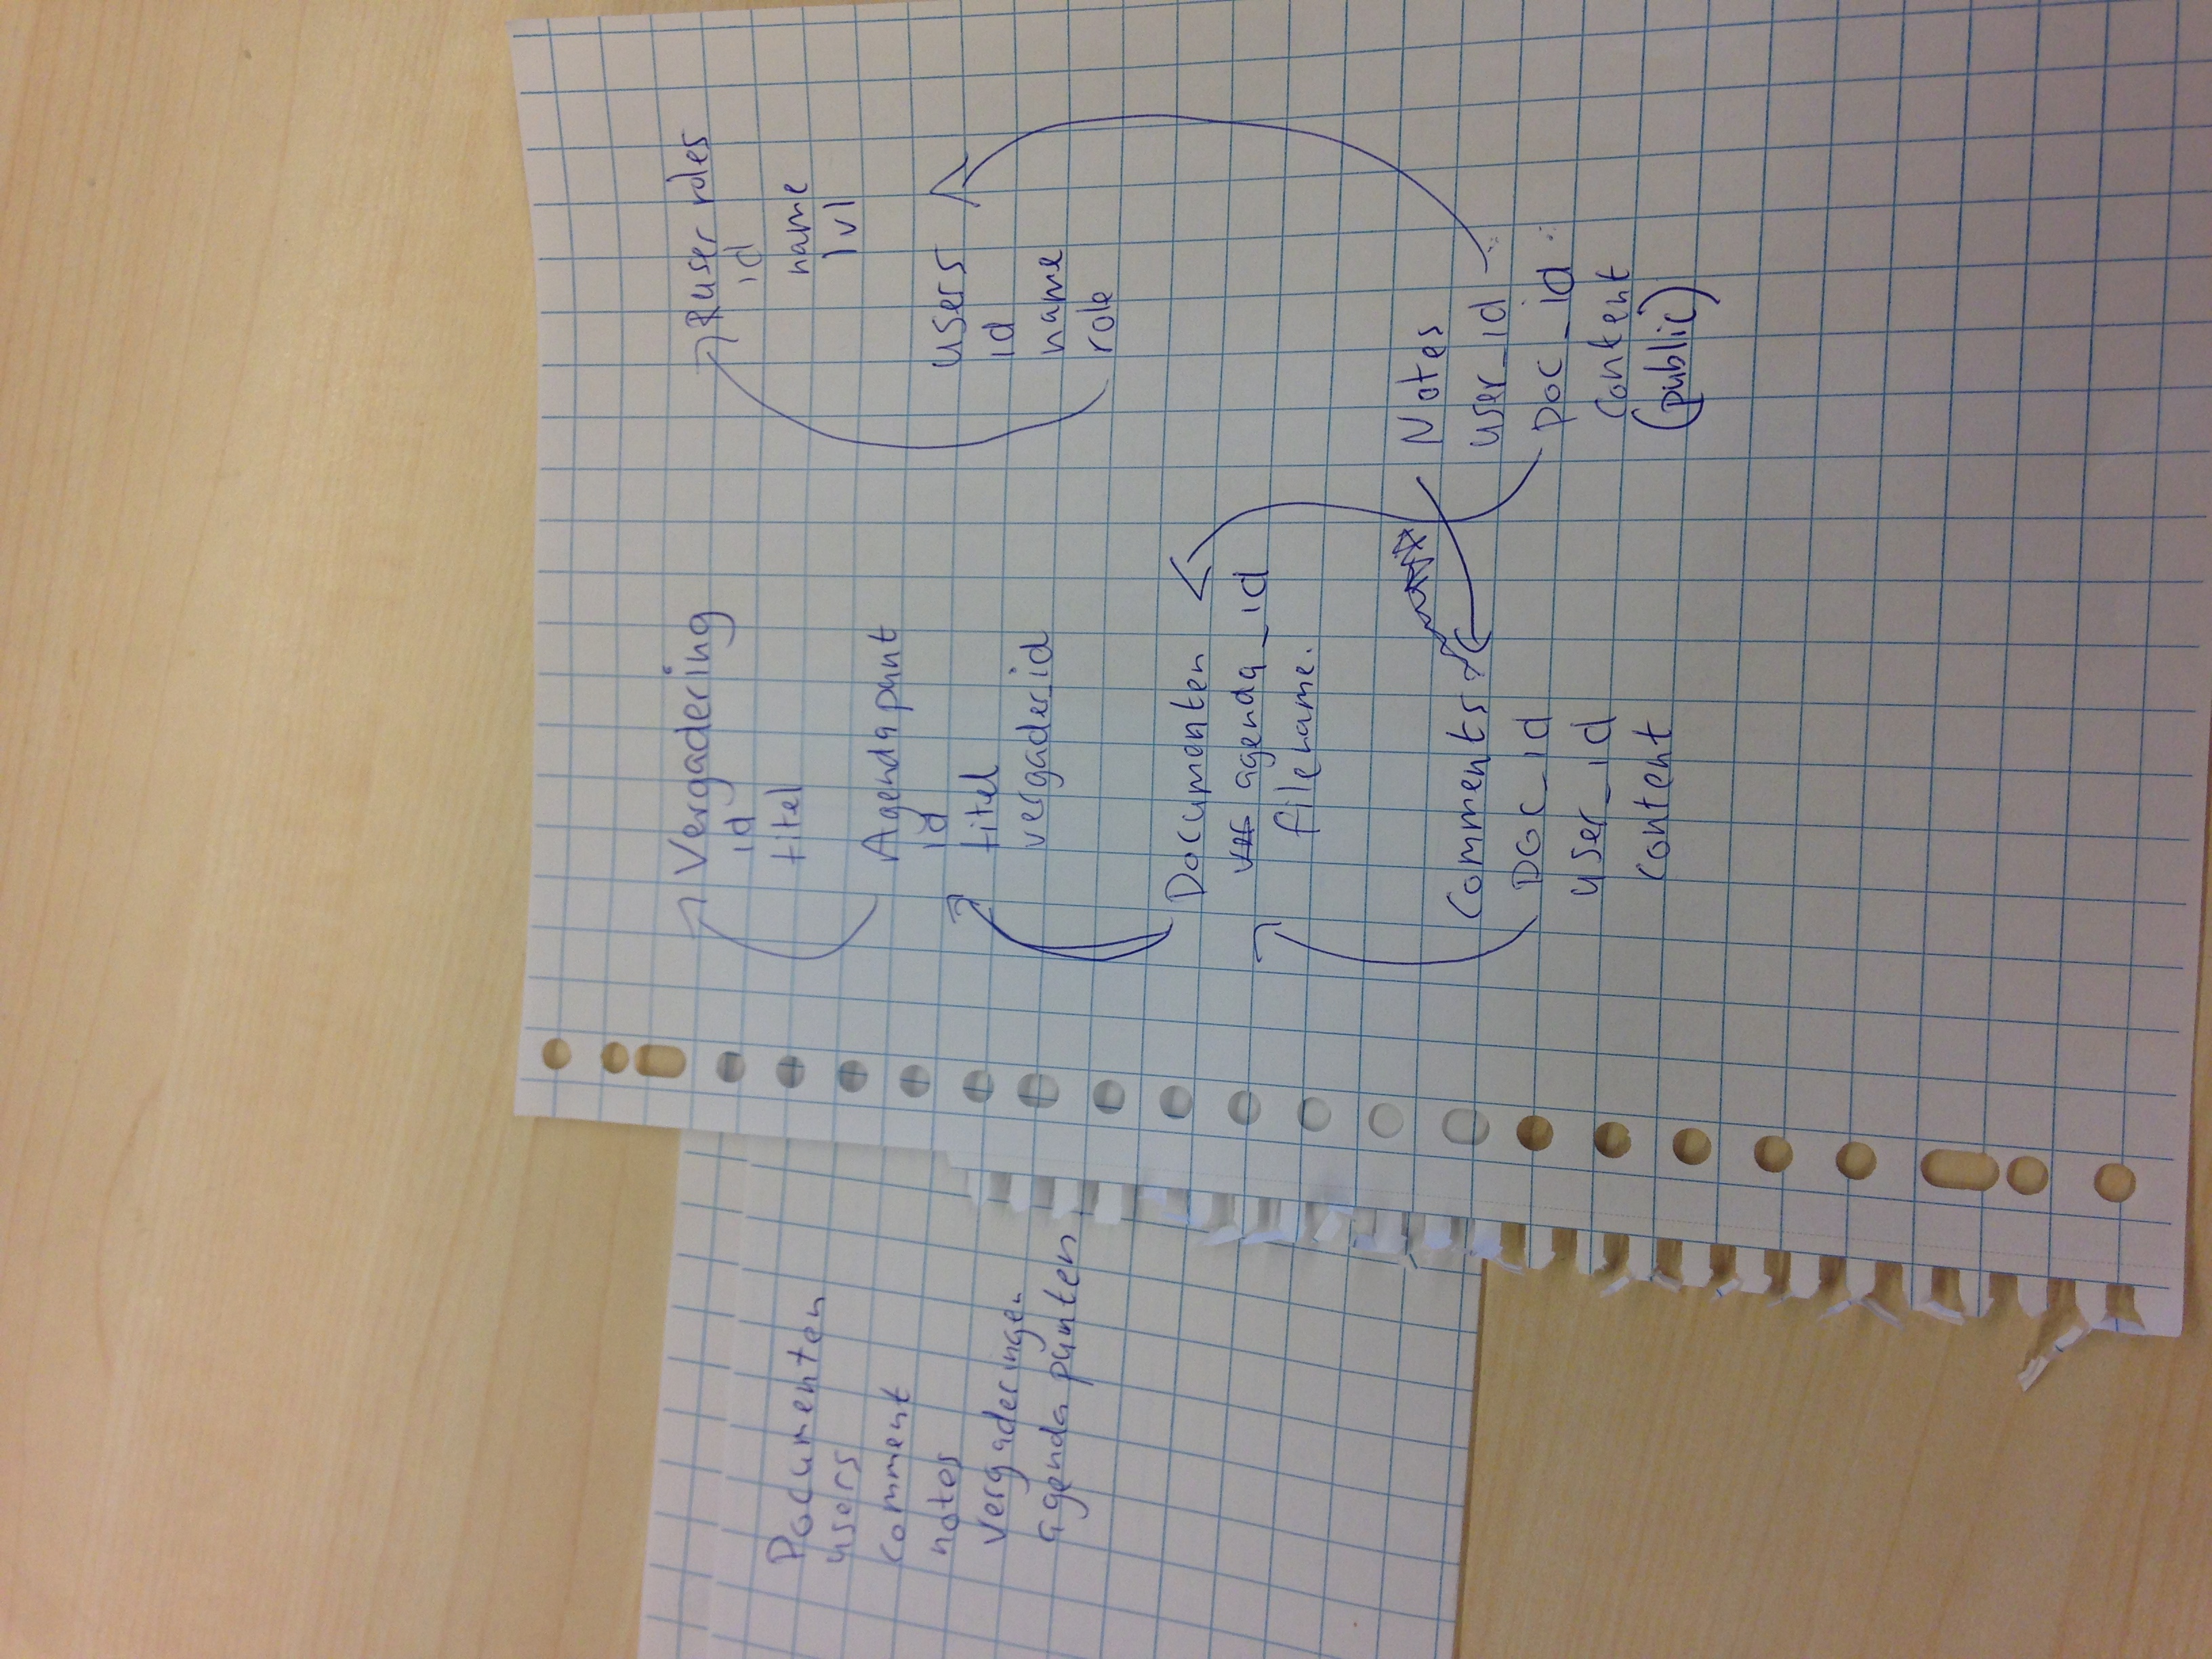 Documenten
users
comment
notes
vergaderingen
agenda punten
Vergadering
id
titel
Agenda punt
id
titel
vergader_id
Documenten
agenda_id
filename.
Comments
Doc_id
user_id
content
user roles
id
name
lvl
users
id
name
role
Notes
user_id
Doc_id
content
(public)